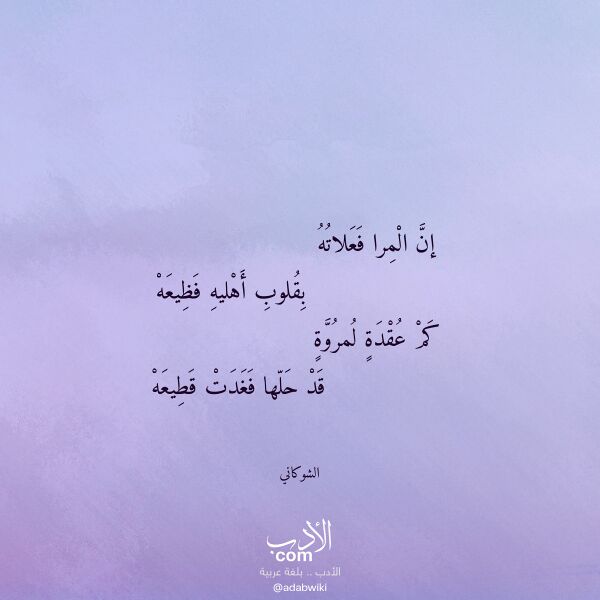 إنَّ الْمِرا فَعَلاتُهُ
بِقُلوبِ أَهْليهِ فَظِيعَهْ
كَمْ عُقْدَةٍ لُمرُوَّةٍ
قَدْ حَلّها فَغَدَتْ قَطِيعَهْ
الشوكاني
الأدب
com
الأدب .. بلغة عربية
@adabwiki